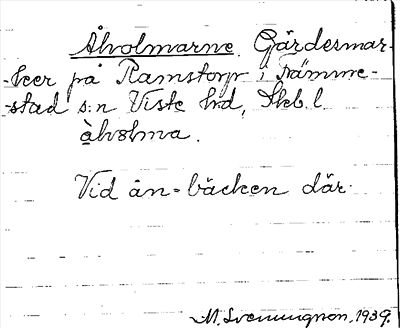 Åholmarne. Gärdesmar-
-ker på Ramstorp, i Främme-
-stad s:n Viste hd, Skb. l.
åholma.
Vid ån-bäcken där.
M. Svenungson, 1939.